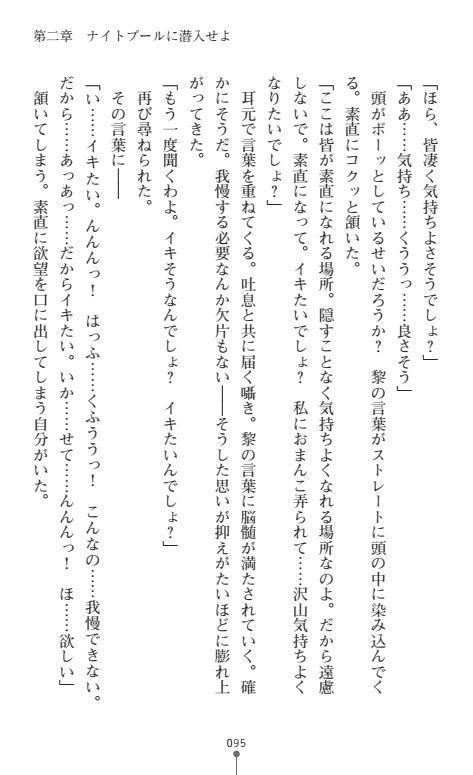 第二章　ナイトプールに潜入せよ
「ほら、皆凄く気持ちよさそうでしょ？」
「ああ……気持ち……くううっ……良さそう」
　頭がボーッとしているせいだろうか？　黎の言葉がストレートに頭の中に染み込んでく
る。素直にコクッと頷いた。
「ここは皆が素直になれる場所。隠すことなく気持ちよくなれる場所なのよ。だから遠慮
しないで。素直になって。イキたいでしょ？　私におまんこ弄られて……沢山気持ちよく
なりたいでしょ？」
　耳元で言葉を重ねてくる。吐息と共に届く囁き。黎の言葉に脳髄が満たされていく。確
かにそうだ。我慢する必要なんか欠片もない――そうした思いが抑えがたいほどに膨れ上
がってきた。
「もう一度聞くわよ。イキそうなんでしょ？　イキたいんでしょ？」
　再び尋ねられた。
　その言葉に――
「い……イキたい。んんんっ！　はっふ……くふううっ！　こんなの……我慢できない。
だから……あっあっ……だからイキたい。いか……せて……んんんっ！　ほ……欲しい」
　頷いてしまう。素直に欲望を口に出してしまう自分がいた。
095